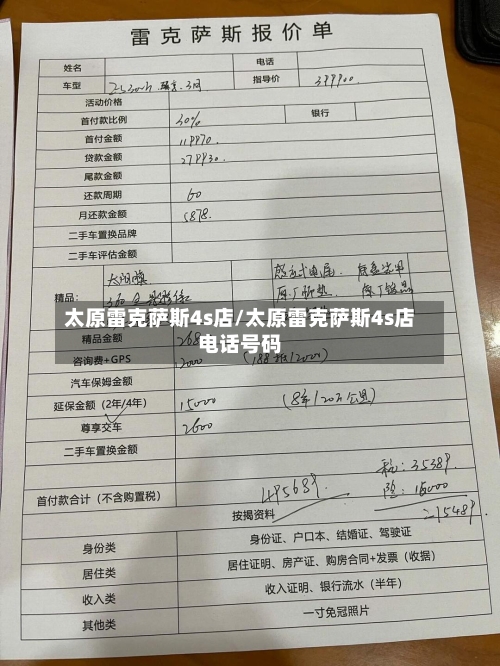 雷克萨斯报价单
姓名 电话
车型 指导价 399900.
活动价格
首付款比例 30% 银行
首付金额 119970.
贷款金额 279930.
尾款金额
还款周期 60
月还款金额 5878.
二手车置换品牌
二手车评估金额
太阳膜
精品:
太原雷克萨斯4s店/太原雷克萨斯4s店
电话号码
精品金额
咨询费+GPS
汽车保姆金额
延保金额(2年/4年) 15000 (8年/20万公里)
尊享交车 2600
二手车置换金额
税: 35389.
首付款合计(不含购置税) 险: 15000
按揭资料
身份类 身份证、户口本、结婚证、驾驶证
居住类 居住证明、房产证、购房合同+发票(收据)
收入类 收入证明、银行流水(半年)
其他类 一寸免冠照片